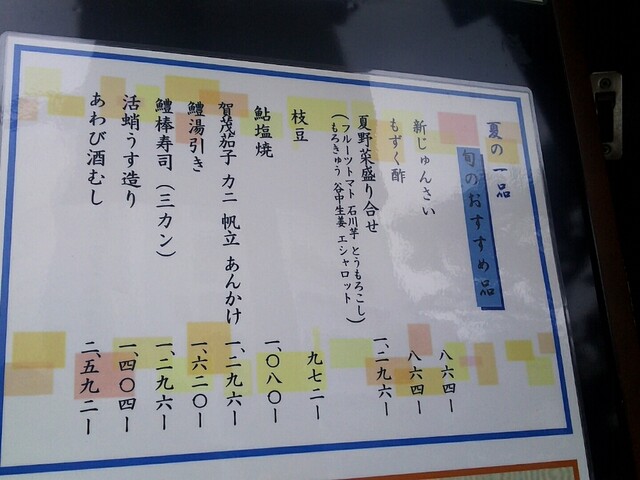 夏の一品
旬のおすすめ品
新じゅんさい 八六四ー
もずく酢 八六四ー
夏野菜盛り合せ 一、二九六ー
(フルーツトマト 石川芋 とうもろこし
もろきゅう 谷中生姜 エシャロット)
枝豆 九七二ー
鮎塩焼 一、〇八〇ー
賀茂茄子 カニ 帆立 あんかけ 一、二九六ー
鱧湯引き 一、六二〇ー
鱧棒寿司(三カン) 一、二九六ー
活蛸うす造り 一、四〇四ー
あわび酒むし 二、五九二ー